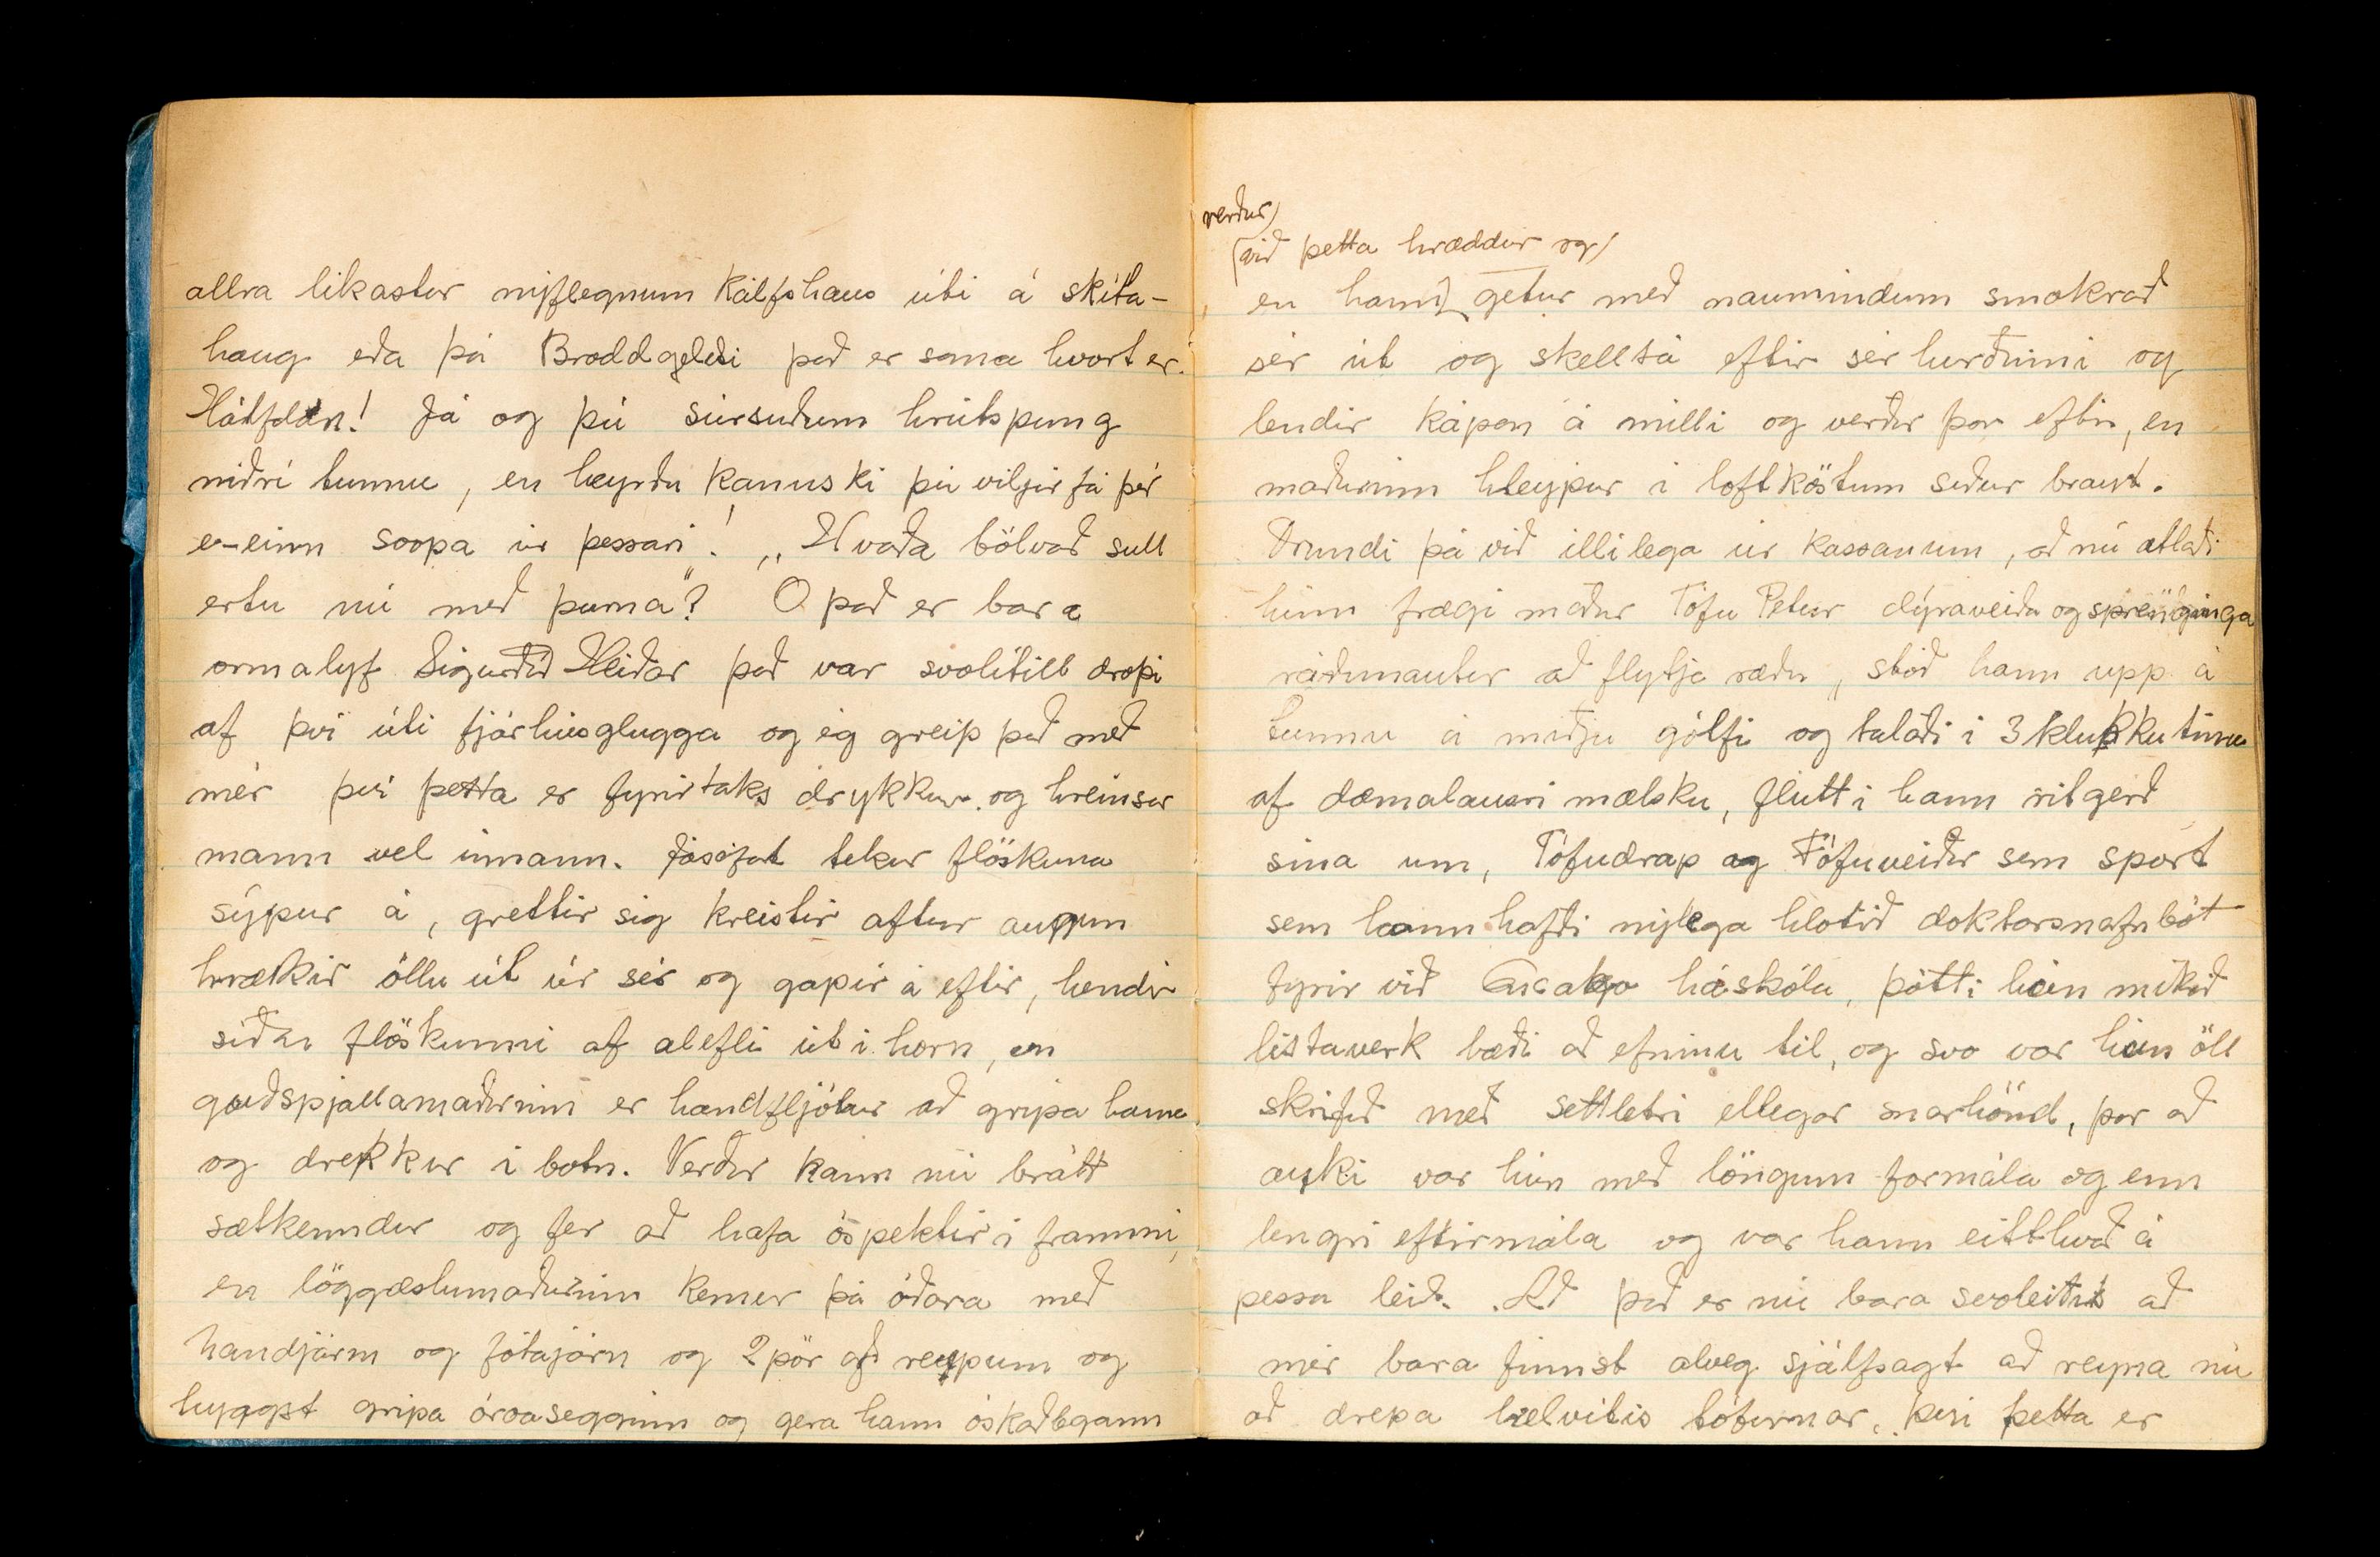 allra líkastur nýflegnum Kálfshaus úti á skíta-
haug eða þá Broddgeldi það er sama hvort er.
Hálfdán! Já og þú súrsuðum hrútspung
niðrí tunnu, en heyrðu kannski þú viljir fá þér
e-einn soopa úr þessari! „Hvaða bölvað sull
ertu nú með þarna"? O það er bara
ormalyf Sigurðið Heiðar það var svolítill dropi
af því úti fjárhúsglugga og ég greip það með
mér því þetta er fyrirtaks drykkur og hreinsar
mann vel innann. Jósafat tekur flöskuna
sýpur á, grettir sig kreistir aftur augum
hrækir öllu út úr sér og gapir á eftir, hendir
síðan flöskunni af alefli út í horn, en
guðspjallamaðurinn er handfljótur að grípa hana
og drekkur í botn. Verður hann nú brátt
sætkenndur og fer að hafa óspektir í frammi,
en löggæslumaðurinn kemur þá óðara með
handjárn og fótajárn og 2 pör af reypum og
hyggst grípa óróasegginn og gera hann óskaðlegann
verður)
(við þetta hræddur og)
en hann getur með naumindum smokrað
sér út og skellt á eftir sér hurðinni og
lendir kápan á milli og verður þar eftir, en
maðurinn hleypur í loftköstum suður braut.
Drundi þá við illilega úr kassanum, að nú ætlaði
hinn frægi maður Tófu Petur dýraveiða og sprenginga
ráðunautur að flytja ræðu, stóð hann upp á
tunnu á miðju gólfi og talaði í 3 klukkutíma
af dæmalausri mælsku, flutti hann ritgerð
sína um, Tófudráp og Tófuveiðar sem sport
sem hann hafði nýlega hlotið doktorsnafnbót
fyrir við háskóla, þótti hún mikið
listaverk bæði að efninu til, og svo var hún öll
skrifuð með settletri ellegar snarhönd, þar að
auki var hún með löngum formála og enn
lengri eftirmála og var hann eitthvað á
þessa leið. Að það er nú bara svoleiðis að
mér bara finnst alveg sjálfsagt að reyna nú
að drepa helvítis tófurnar, því þetta er